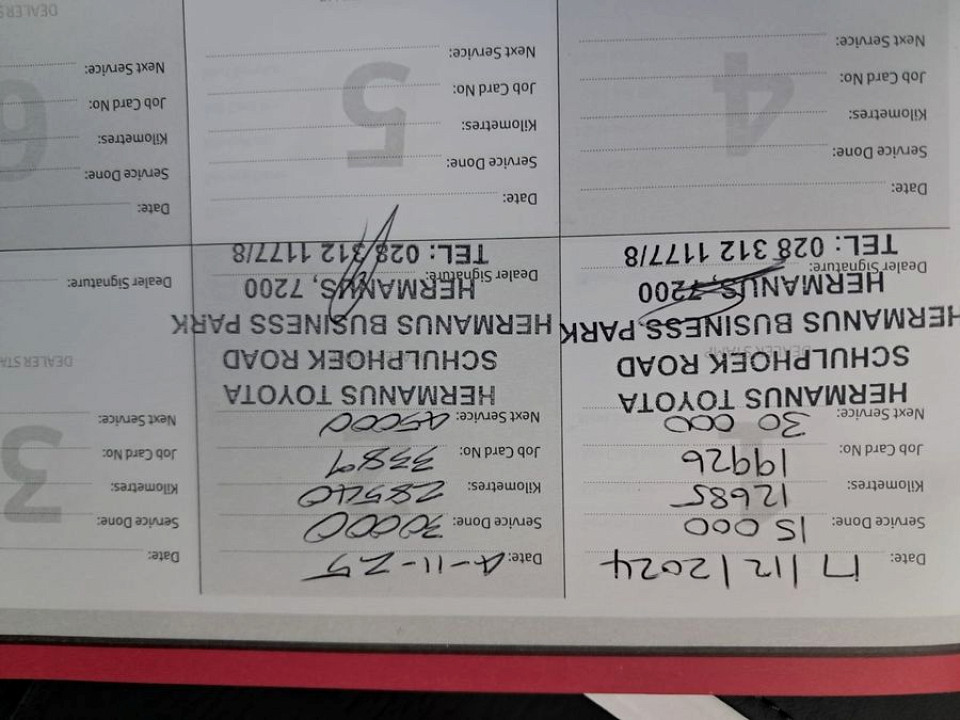 Date: 17/12/2024
Service Done: 15 000
Kilometres: 12685
Job Card No: 19926
Next Service: 30 000
HERMANUS TOYOTA
SCHULPHOEK ROAD
HERMANUS BUSINESS PARK
HERMANUS, 7200
Dealer Signature:
TEL: 028 312 1177/8
Date: 4-11-25
Service Done: 30000
Kilometres: 28540
Job Card No:
Next Service: 45000
HERMANUS TOYOTA
SCHULPHOEK ROAD
HERMANUS BUSINESS PARK
HERMANUS, 7200
Dealer Signature:
TEL: 028 312 1177/8
3
Date:
Service Done:
Kilometres:
Job Card No:
Next Service:
DEALER STA
Dealer Signature:
4
Date:
Service Done:
Kilometres:
Job Card No:
Next Service:
5
Date:
Service Done:
Kilometres:
Job Card No:
Next Service:
6
Date:
Service Done:
Kilometres:
Job Card No:
Next Service:
DEALER S